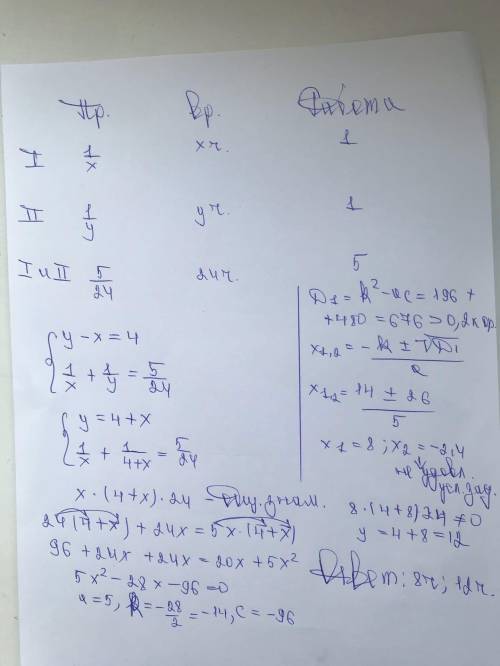 Пр. Вр. Работа
I 1/x xч. 1
II 1/y yч. 1
I и II 5/24 24ч. 5
{ y - x = 4
1/x + 1/y = 5/24
{ y = 4 + x
1/x + 1/(4+x) = 5/24
x · (4+x) · 24 - Общ. знам.
24(4+x) + 24x = 5x · (4+x)
96 + 24x + 24x = 20x + 5x²
5x² - 28x - 96 = 0
a = 5, k = -28/2 = -14, c = -96
D1 = k² - ac = 196 +
+ 480 = 676 > 0, 2 к ур.
x1,2 = (-k ± √D1)/a
x1,2 = (14 ± 26)/5
x1 = 8; x2 = -2,4
не удовл.
усл. зад.
8 · (4+8) 24 ≠ 0
y = 4 + 8 = 12
Ответ: 8ч; 12ч.